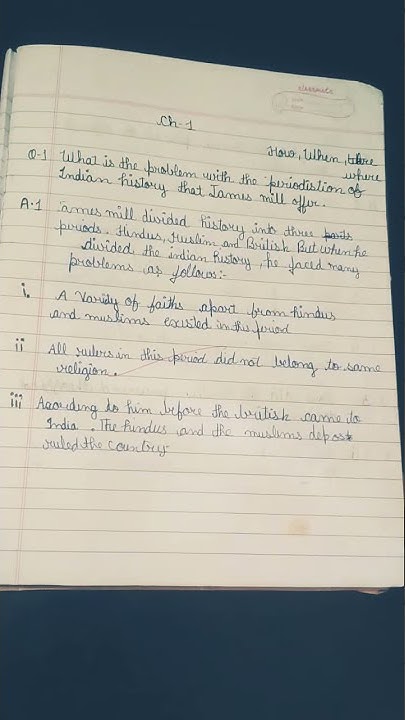 classmate
Date
Page
Ch-1
How, When, there where
Q-1 What is the problem with the periodistion of
Indian history that James mill offer.
A-1 James mill divided history into three parts
periods. Hindus, Muslim and British But when he
divided the indian history, he faced many
problems as follows:-
i. A Varidy of faiths apart from hindus
and muslims existed in this period
ii All rulers in this period did not belong to same
religion.
iii According to him before the british came to
India. The hindus and the muslims depost
ruled the country